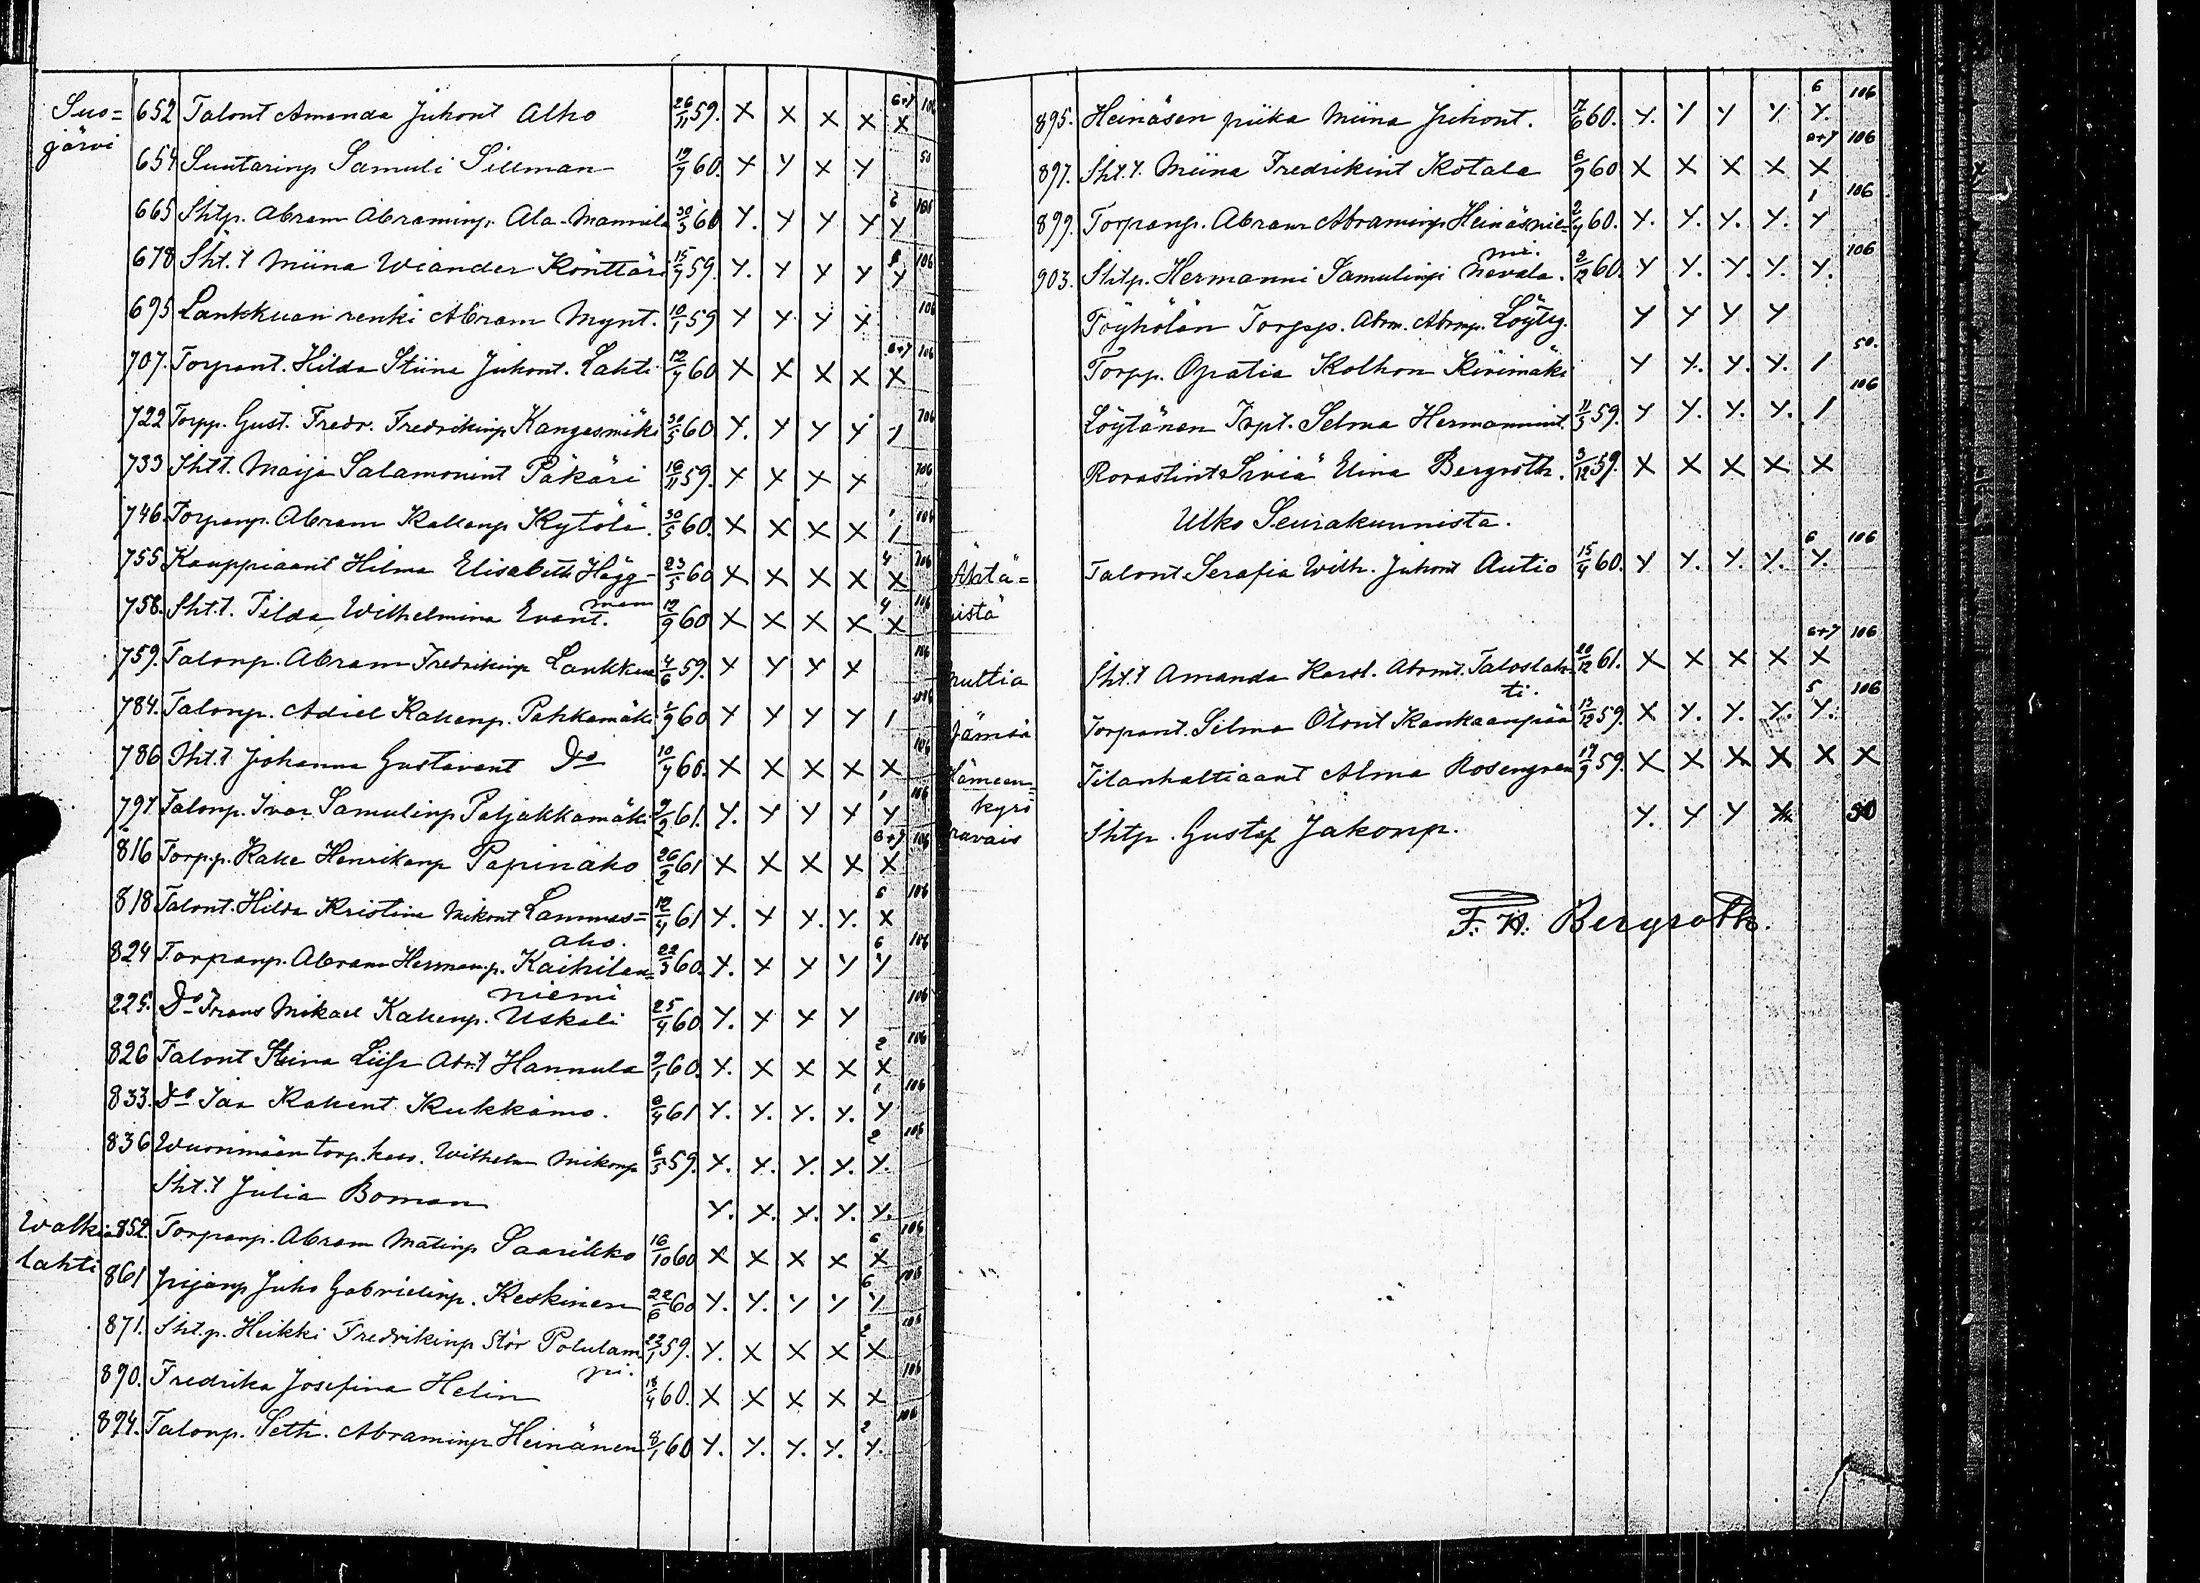 Suo= 652 Talont Amanda Juhont Alho 26/11 59. X X X X 6+7 X 106
järvi
654 Suutarinp Samuli Sillman 19/7 60. X Y X Y 50
665 Shtp. Abram Abraminp. Ala-Mannila 30/3 60 Y. Y Y Y 6 Y 106
678 Sht.t Miina Wiander Könttäri 15/7 59. Y. Y Y Y 8 Y 106
695 Lankkuan renki Abram Mynt. 10/1 59 Y Y Y Y 106
707. Torpant. Hilda Stiina Juhont. Lahti 12/7 60 X X X X 6+7 X 106
722 Torpp. Gust. Fredr. Fredrikinp Kangasmäki 30/5 60 Y. Y Y Y 1 106
733 Sht.t Maija Salamonint Päkäri 16/11 59. Y X X Y 106
746 Torpanp. Abram Kallenp Kytölä. 30/5 60. X X X X 1 1 106
755 Kauppiaant Hilma Elisabeth Hägg- 23/5 60 X X X X 4 X 106
man
758. Sht.t. Tilda Wilhelmina Evant. 12/9 60 X X X X 4 X 106
759. Talonp. Abram Fredrikinp Lankkua 4/6 59. Y Y Y X 106
784. Talonp. Adiel Kallenp. Pahkamäki 1/9 60 Y Y Y Y 1 106
786 Sht.t Johanna Gustavant Do 10/7 60. X X X X X 106
797 Talonp. Ivar Samulinp Patjakkamäki 9/2 61. Y. Y Y Y 1 Y 106
816 Torp.p. Kalle Henrikanp Papinaho 26/2 61 X X X X 6+7 X 106
818 Talont. Hilda Kristina Mikont Lammas= 12/4 61 Y. Y Y. Y. 6 X 106
aho.
824 Torpanp. Abram Herman.p. Kaihilan= 22/3 60. Y. Y Y Y 6 Y 106
niemi
225. Do Frans Mikael Kallenp. Uskali 25/4 60 Y. Y Y Y 106
826 Talont Stiina Liisa Abr.t Hannula 9/1 60. Y. X X X 2 X 106
833. Do Ida Kallent Kukkamo. 8/4 61 Y. Y. Y. Y. 1 Y 106
836 Wuorimään torp. kasv. Wilhelm Mikonp 6/3 59. Y. Y. Y. Y. 2 Y. 106
Sht.t Julia Boman Y. Y. Y. Y. Y.
Walkia 852. Torpanp. Abram Matinp Saarikko 16/10 60 X X X X 6 X 106
lahti 861 Juho Gabrielinp. Keskinen 22/6 60 Y. Y. Y Y 6 Y 106
871. Sht.p. Heikki Fredrikinp Stör Polulam 23/1 59. Y. X X X 2 X 106
pi.
890. Fredrika Josefina Helin 18/4 60. X X X X X 106
894. Talonp. Seth. Abraminp Heinänen 8/1 60 Y. Y. Y. Y. 2 Y. 106
895. Heinäsen piika Miina Juhont. 17/6 60. Y. Y Y Y 6 Y. 106
897. Sht.t. Miina Fredrikint Kotala 6/9 60 X X X X 6+7 X 106
899. Torpanp. Abram Abraminp Heinäsnie- 2/4 60. Y. Y. Y. Y. 1 Y 106
mi.
903. Shtp. Hermanni Samulinp Nevala. 2/12 60. Y Y. Y. Y. Y. 106
Töyhölän Torp.p. Abm. Abmp. Löyttg. Y Y Y Y
Torpp. Opatia Kolhon Kivimäki Y Y. Y. Y. 1 50.
Löytänen Trpt. Selma Hermannint 11/3 59. Y Y. Y. Y. 1 106
Rovastint Sivia Elina Bergroth. 3/12 59. X X X X X
Ulko Seurakunnista.
Ähtä= Talont Serafia Wilh. Juhont Autio 15/4 60. Y Y. Y. Y. 6 Y. 106
ristä
Multia Sht.t Amanda Karol. Abrmt. Taloslah- 20/12 61. X X X X 6+7 X 106
ti.
Jämsä Torpant. Selma Otont Kankaanpää 13/12 59. X Y. Y. Y. 5 Y. 106
Hämeen= Tilanhaltiaant Alma Rosengren 17/9 59. X X X X X X
kyrö
ravais Shtp. Gustaf Jakonp. Y. Y Y X 50
F. H. Bergroth.